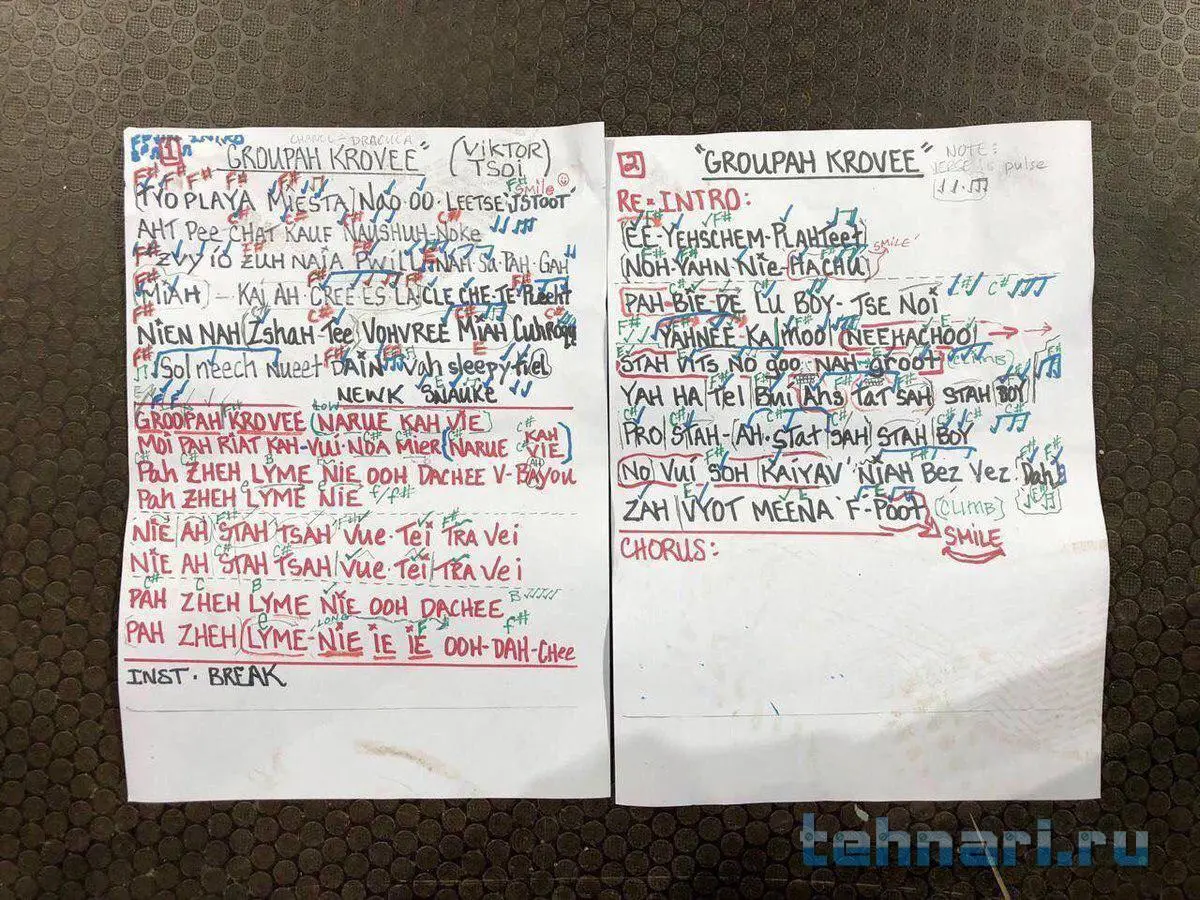 1
CHANEL - DRACULA
"GROUPAH KROVEE" (ViKTOR TSOI)
F# F# F# F# F# Smile
TYO PLAYA MiESTA NAO OO·LEETSE JSTOOT
AHT Pee CHAT KAUF NAUSHUH-NOKE
ZVY IO ZUH NAJA PWiLL NAH Su-PAH-GAH
MIAH - KAI AH·CREE·ES LA CLE CHE·TE PLecht
NIEN NAH IZshAH-Tee VOHVREE MiAH
Sol neech Nueet DAIN Vah sleepy tiel
NEWK SNAUKE
GROOPAH KROVEE (NARUE KAH VIE)
MOI PAH RIAT KAH-VUI·NOA MIER (NARUE KAH VIE)
Pah ZHEH LYME NIE OOH DACHEE V-BAYOU
Pah ZHEH LYME NIE f/f#
NIE AH STAH TSAH VUE·Tei TRA Vei
NIE AH STAH TSAH VUE·Tei TRA Vei
C# C B B
PAH ZHEH LYME NIE OOH DACHEE
e LONG F f#
PAH ZHEH LYME-NIE IE IE OOH-DAH-CHee
INST· BREAK
2
"GROUPAH KROVEE" NOTE:
VERSE is pulse
RE-INTRO:
EE·YEHSCHEM·PLAHTeet
NOH·YAHN NIE-HACHU SMILE
PAH-BIE-DE LU BOY-TSE NOI
YAHNEE-KAI MOOI NEEHACHOO
STAH VITS NO goo NAH-groot (CLIMB)
YAH HA Tel BUI Ahs TAT SAH STAH BOY
PRO STAH-AH·STAT SAH STAH BOY
NO VUI SOH KAIYAV NIAH Bez Vez·Dah
ZAH VYOT MEENA F-POOT (CLIMB)
SMILE
CHORUS:
tehnari.ru